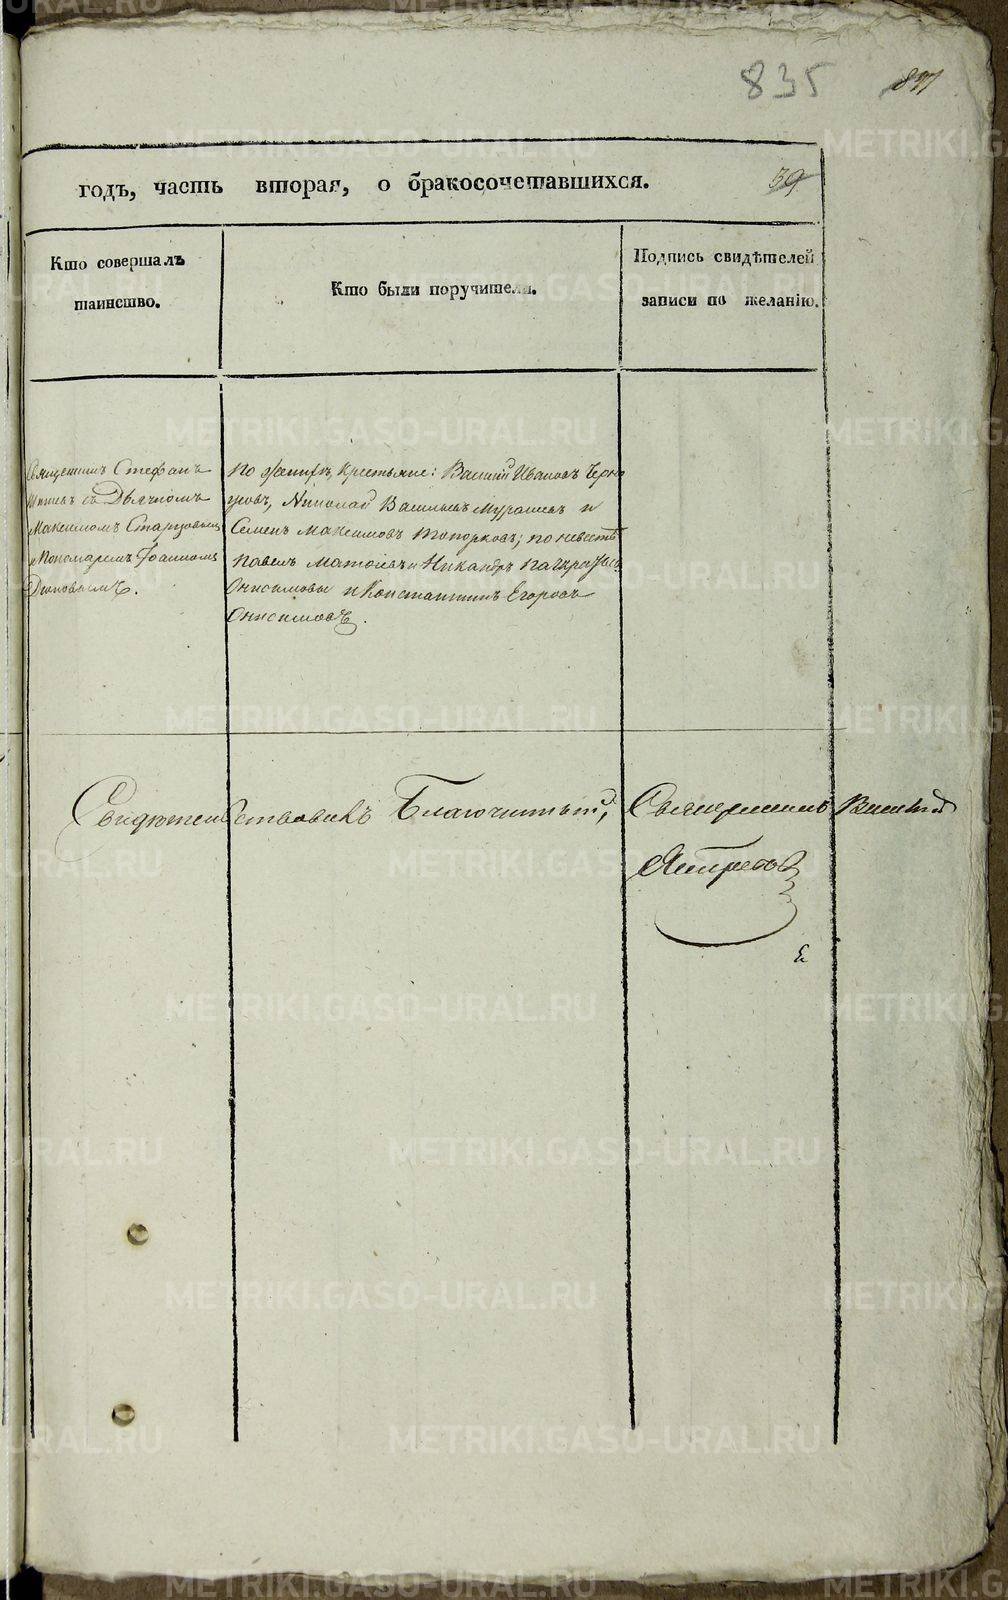 835
годъ, часть вторая, о бракосочетавшихся.
39
Кто совершалъ
таинство.
Кто были поручители.
Подпись свидѣтелей
записи по желанію.
Священникъ Стефанъ
съ Дьячкомъ
Максимомъ Старцовымъ
и Пономаремъ Іоанномъ
по женихѣ, крестьяне: Василій Ивановъ
Николай Васильевъ Мурашевъ и
Семенъ Максимовъ Топорковъ; по невѣстѣ
Павелъ и Никандръ
Онисимовы и Константинъ Егоровъ
Онисимовъ.
Свидѣтельствовалъ Благочинный, Священникъ Василій
METRIKI.GASO-URAL.RU